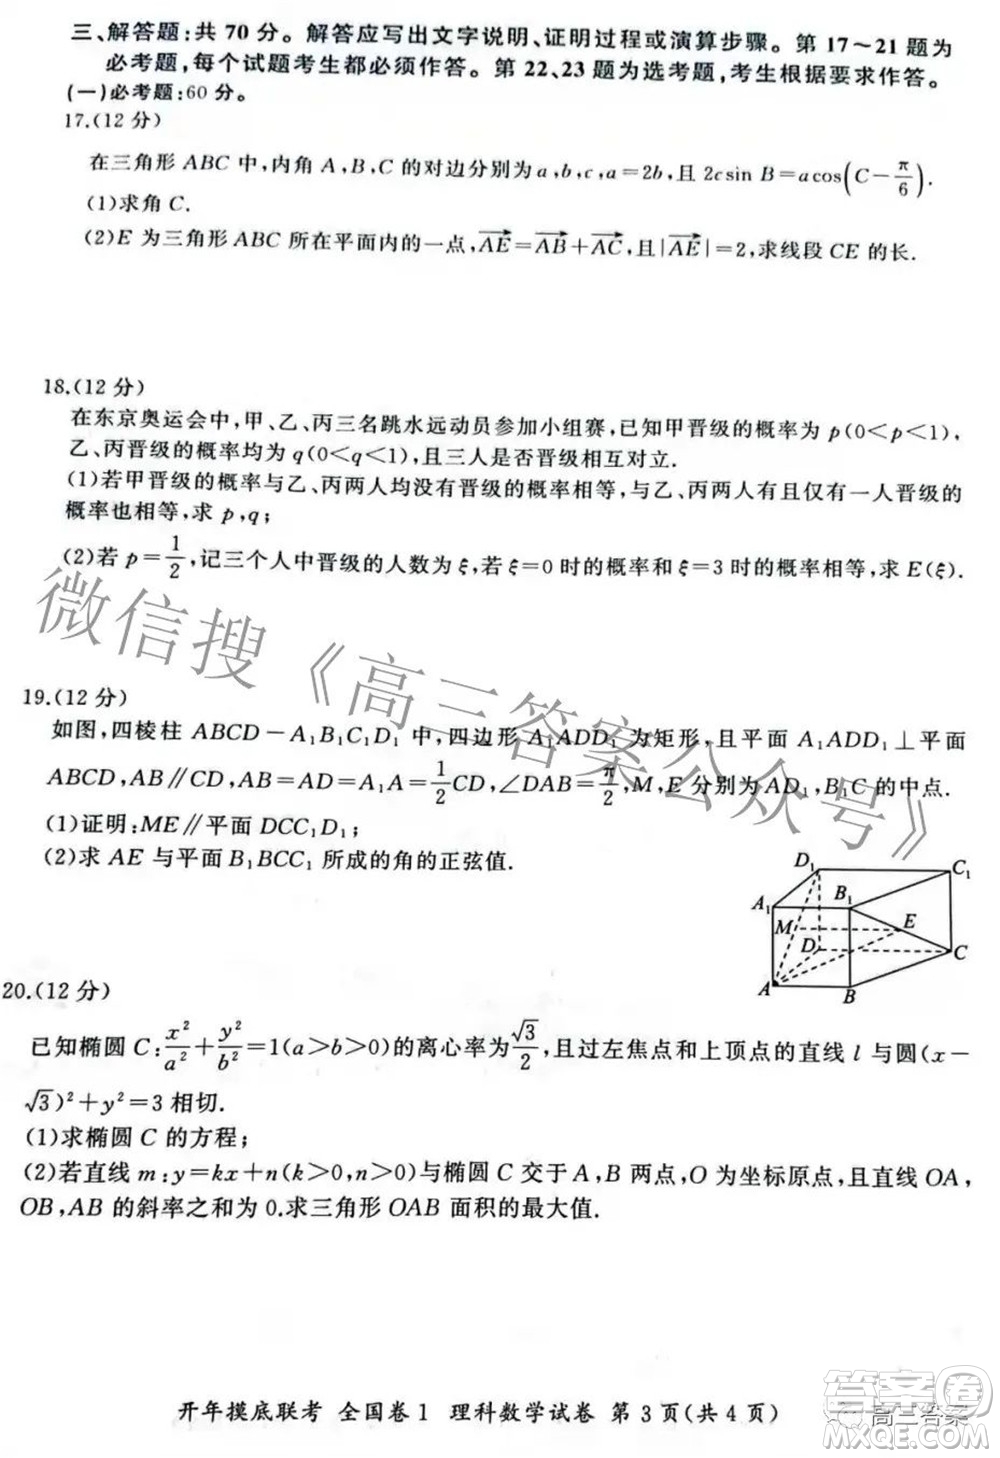 三、解答题:共 70 分。解答应写出文字说明、证明过程或演算步骤。第 17～21 题为
必考题,每个试题考生都必须作答。第 22、23 题为选考题,考生根据要求作答。
(一)必考题:60 分。
17.(12 分)
在三角形 ABC 中,内角 A,B,C 的对边分别为 a,b,c,a=2b,且 2csin B=acos(C−π/6).
(1)求角 C.
(2)E 为三角形 ABC 所在平面内的一点,AE→=AB→+AC→,且|AE→|=2,求线段 CE 的长.
18.(12 分)
在东京奥运会中,甲、乙、丙三名跳水运动员参加小组赛,已知甲晋级的概率为 p(0<p<1),
乙、丙晋级的概率均为 q(0<q<1),且三人是否晋级相互对立.
(1)若甲晋级的概率与乙、丙两人均没有晋级的概率相等,与乙、丙两人有且仅有一人晋级的
概率也相等,求 p,q;
(2)若 p=1/2,记三个人中晋级的人数为 ξ,若 ξ=0 时的概率和 ξ=3 时的概率相等,求 E(ξ).
19.(12 分)
如图,四棱柱 ABCD−A₁B₁C₁D₁ 中,四边形 A₁ADD₁ 为矩形,且平面 A₁ADD₁⊥平面
ABCD,AB∥CD,AB=AD=A₁A=1/2CD,∠DAB=π/2,M,E 分别为 AD₁,B₁C 的中点.
(1)证明:ME∥平面 DCC₁D₁;
(2)求 AE 与平面 B₁BCC₁ 所成的角的正弦值.
D₁
C₁
A₁
B₁
M
E
D
C
A
B
20.(12 分)
已知椭圆 C:x²/a²+y²/b²=1(a>b>0)的离心率为√3/2,且过左焦点和上顶点的直线 l 与圆(x−
√3)²+y²=3 相切.
(1)求椭圆 C 的方程;
(2)若直线 m:y=kx+n(k>0,n>0)与椭圆 C 交于 A,B 两点,O 为坐标原点,且直线 OA,
OB,AB 的斜率之和为 0.求三角形 OAB 面积的最大值.
微信搜《高三答案公众号》
开年摸底联考 全国卷 1 理科数学试卷 第 3 页(共 4 页)
高三答案
答案圈
MXQE.COM